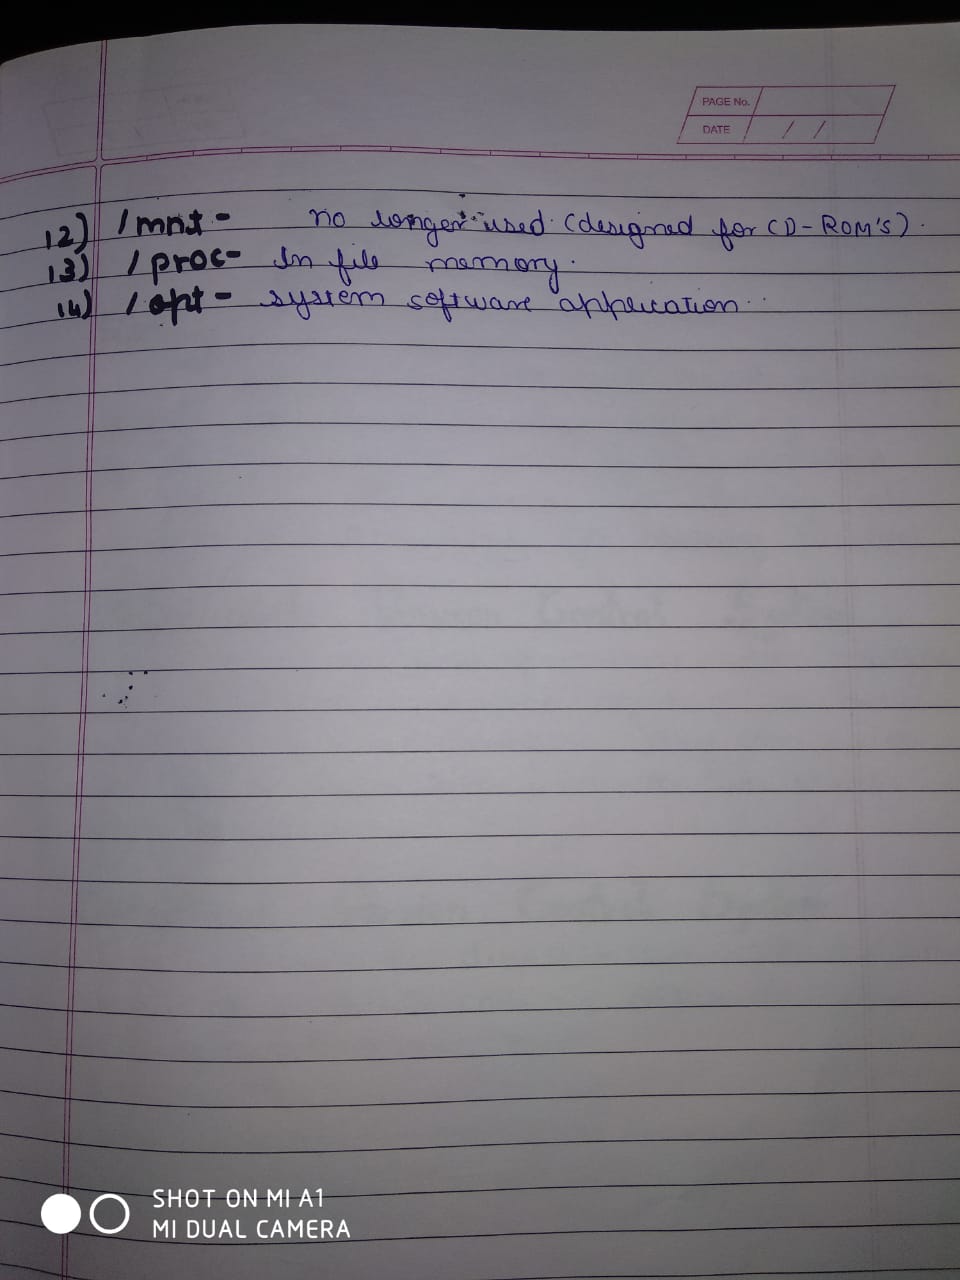 PAGE No.
DATE / /
12) /mnt - no longer used (designed for CD-ROM's).
13) /proc- In file memory.
14) /opt - system software application
SHOT ON MI A1
MI DUAL CAMERA